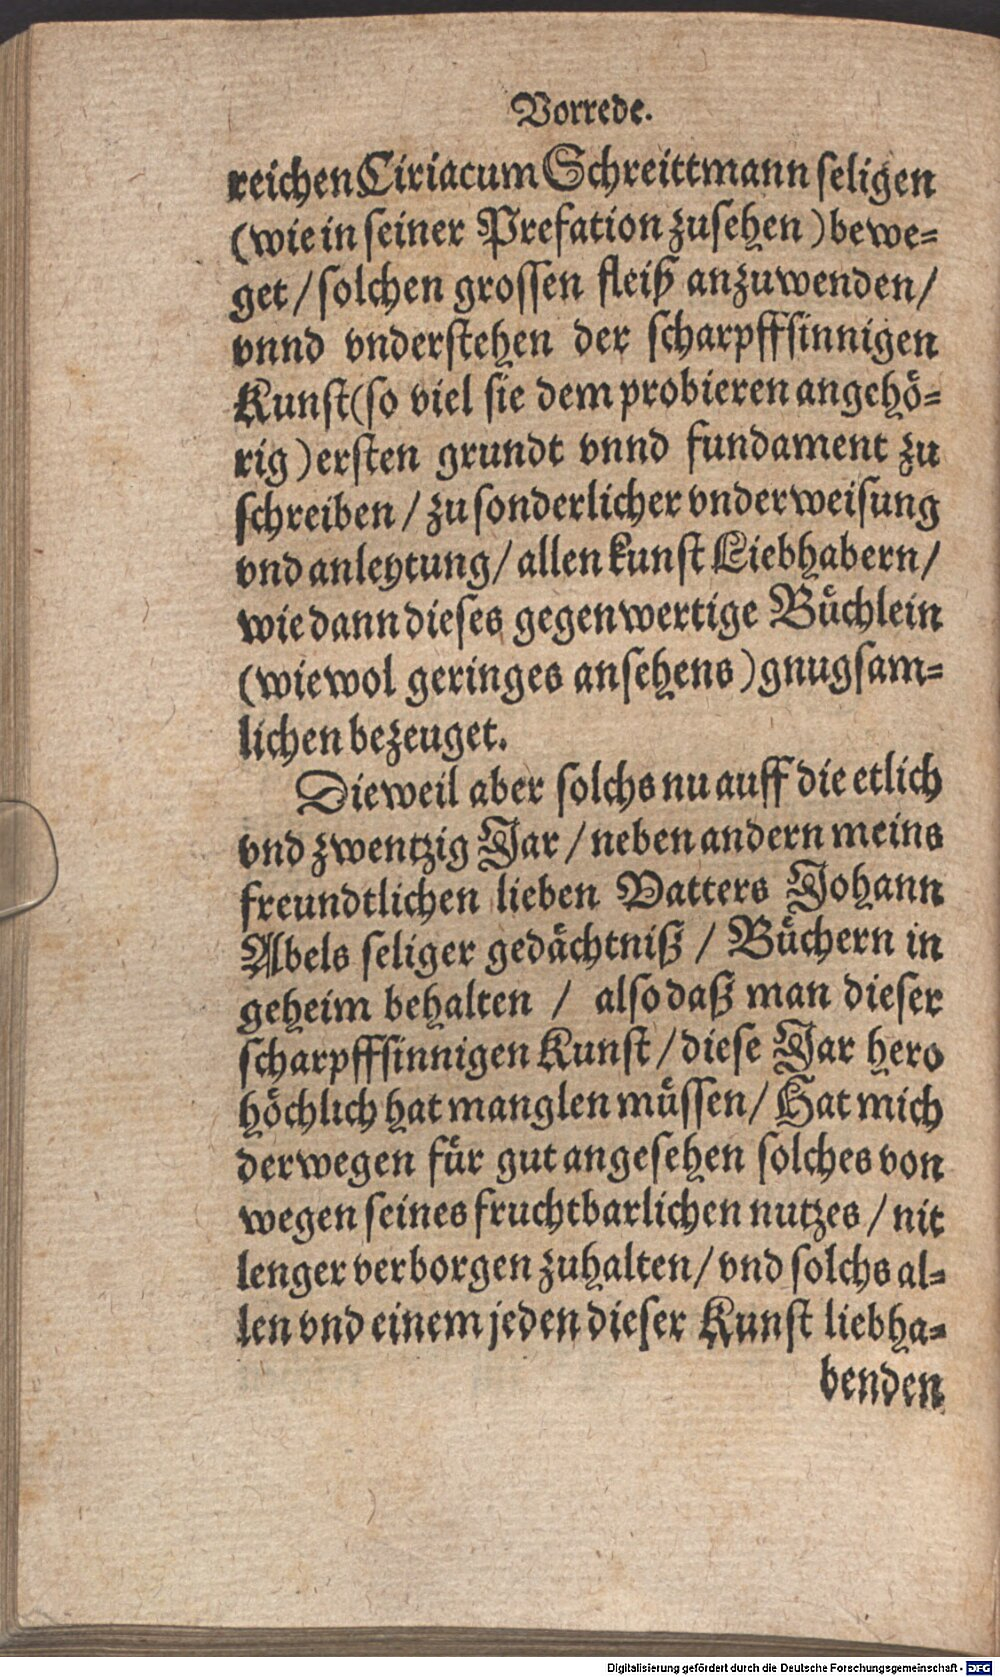 Vorrede.
reichen Ciriacum Schreittmann seligen
(wie in seiner Prefation zusehen) bewe=
get / solchen grossen fleiß anzuwenden /
vnnd vnderstehen der scharpffsinnigen
Kunst (so viel sie dem probieren angehö=
rig) ersten grundt vnnd fundament zu
schreiben / zu sonderlicher vnderweisung
vnd anleytung / allen kunst Liebhabern /
wie dann dieses gegenwertige Büchlein
(wiewol geringes ansehens) gnugsam=
lichen bezeuget.
Dieweil aber solchs nu auff die etlich
vnd zwentzig Jar / neben andern meins
freundtlichen lieben Vatters Johann
Abels seliger gedächtniß / Büchern in
geheim behalten / also daß man dieser
scharpffsinnigen Kunst / diese Jar hero
höchlich hat manglen müssen / Hat mich
derwegen für gut angesehen solches von
wegen seines fruchtbarlichen nutzes / nit
lenger verborgen zuhalten / vnd solchs al=
len vnd einem jeden dieser Kunst liebha=
benden
Digitalisierung gefördert durch die Deutsche Forschungsgemeinschaft - DFG